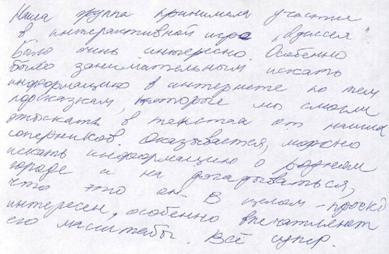 Наша группа принимала участие
в интерактивной игре
Было очень интересно. Особенно
было занимательным искать
информацию в интернете по тем
подсказкам, которые мы смогли
отыскать в текстах от наших
соперников. Оказывается, можно
искать информацию о родном
городе и не догадываться,
что это он. В целом - проект
интересен, особенно впечатляют
его масштабы. Всё супер.